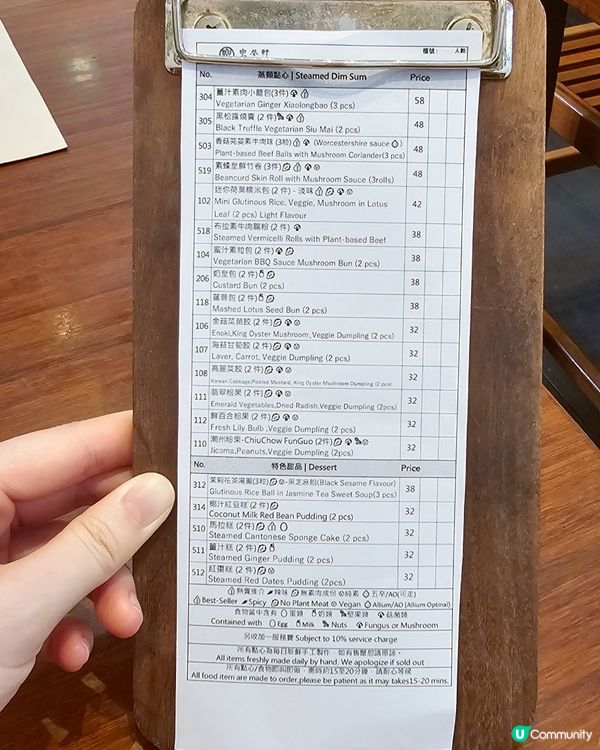 樂茶軒 櫃號: 人數
No. 蒸類點心 | Steamed Dim Sum Price
304 薑汁素肉小籠包(3件)
Vegetarian Ginger Xiaolongbao (3 pcs) 58
305 黑松露燒賣 (2 件)
Black Truffle Vegetarian Siu Mai (2 pcs) 48
503 香菇芫荽素牛肉球 (3粒) (Worcestershire sauce)
Plant-based Beef Balls with Mushroom Coriander(3 pcs) 48
519 素蠔皇鮮竹卷 (3件)
Beancurd Skin Roll with Mushroom Sauce (3rolls) 48
102 迷你荷葉糯米包 (2 件) - 淡味
Mini Glutinous Rice, Veggie, Mushroom in Lotus
Leaf (2 pcs) Light Flavour 42
518 布拉素牛肉腸粉 (2 件)
Steamed Vermicelli Rolls with Plant-based Beef 38
104 蜜汁素粒包 (2 件)
Vegetarian BBQ Sauce Mushroom Bun (2 pcs) 38
206 奶皇包 (2 件)
Custard Bun (2 pcs) 38
118 蓮蓉包 (2 件)
Mashed Lotus Seed Bun (2 pcs) 38
106 金菇菜苗餃 (2 件)
Enoki,King Oyster Mushroom,Veggie Dumpling (2 pcs) 32
107 海苔甘筍餃 (2 件)
Laver, Carrot, Veggie Dumpling (2 pcs) 32
108 高麗菜餃 (2 件)
Korean Cabbage,Pickled Mustard, King Oyster Mushroom Dumpling (2 pcs) 32
111 翡翠粉果 (2 件)
Emerald Vegetables,Dried Radish,Veggie Dumpling (2pcs) 32
112 鮮百合粉果 (2 件)
Fresh Lily Bulb ,Veggie Dumpling (2 pcs) 32
110 潮州粉果-ChiuChow FunGuo (2件)
Jicoma,Peanuts,Veggie Dumpling (2 pcs) 32
No. 特色甜品 | Dessert Price
312 茉莉花茶湯圓(3粒) -黑芝麻餡(Black Sesame Flavour)
Glutinous Rice Ball in Jasmine Tea Sweet Soup(3 pcs) 38
314 椰汁紅豆糕 (2 件)
Coconut Milk Red Bean Pudding (2 pcs) 32
510 馬拉糕 (2件)
Steamed Cantonese Sponge Cake (2 pcs) 32
511 薑汁糕 (2 件)
Steamed Ginger Pudding (2 pcs) 32
512 紅棗糕 (2 件)
Steamed Red Dates Pudding (2pcs) 32
熱賣推介 辣味 無素肉成份 純素 五辛/AO(可走)
Best-Seller Spicy No Plant Meat Vegan Allium/AO (Allium Optinal)
食物當中含有 蛋類 奶類 堅果類 菇菌類
Contained with Egg Milk Nuts Fungus or Mushroom
另收加一服務費 Subject to 10% service charge
所有點心為每日新鮮手工製作，如有售罄懇請原諒。
All items freshly made daily by hand. We apologize if sold out
所有點心/食物即叫即做，需時約15至20分鐘，請耐心等候
All food item are made to order,please be patient as it may takes15-20 mins.
U Community